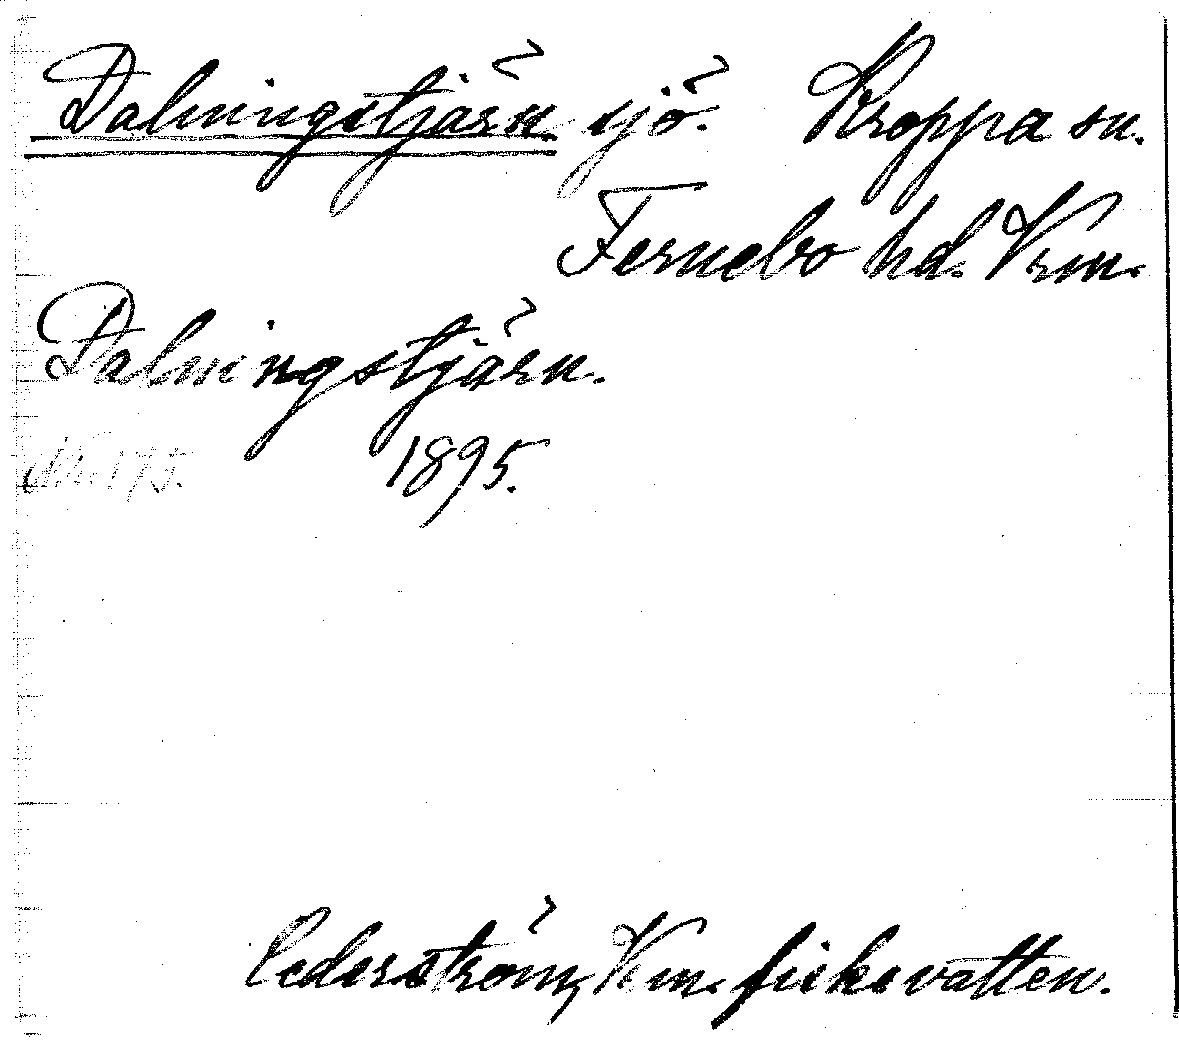 Dalmingstjärn sjö. Kroppa sn.
Fernebo hd. Vrm.
Dalmingstjärn.
No 175. 1895.
Cederström, Vrm. fiskevatten.